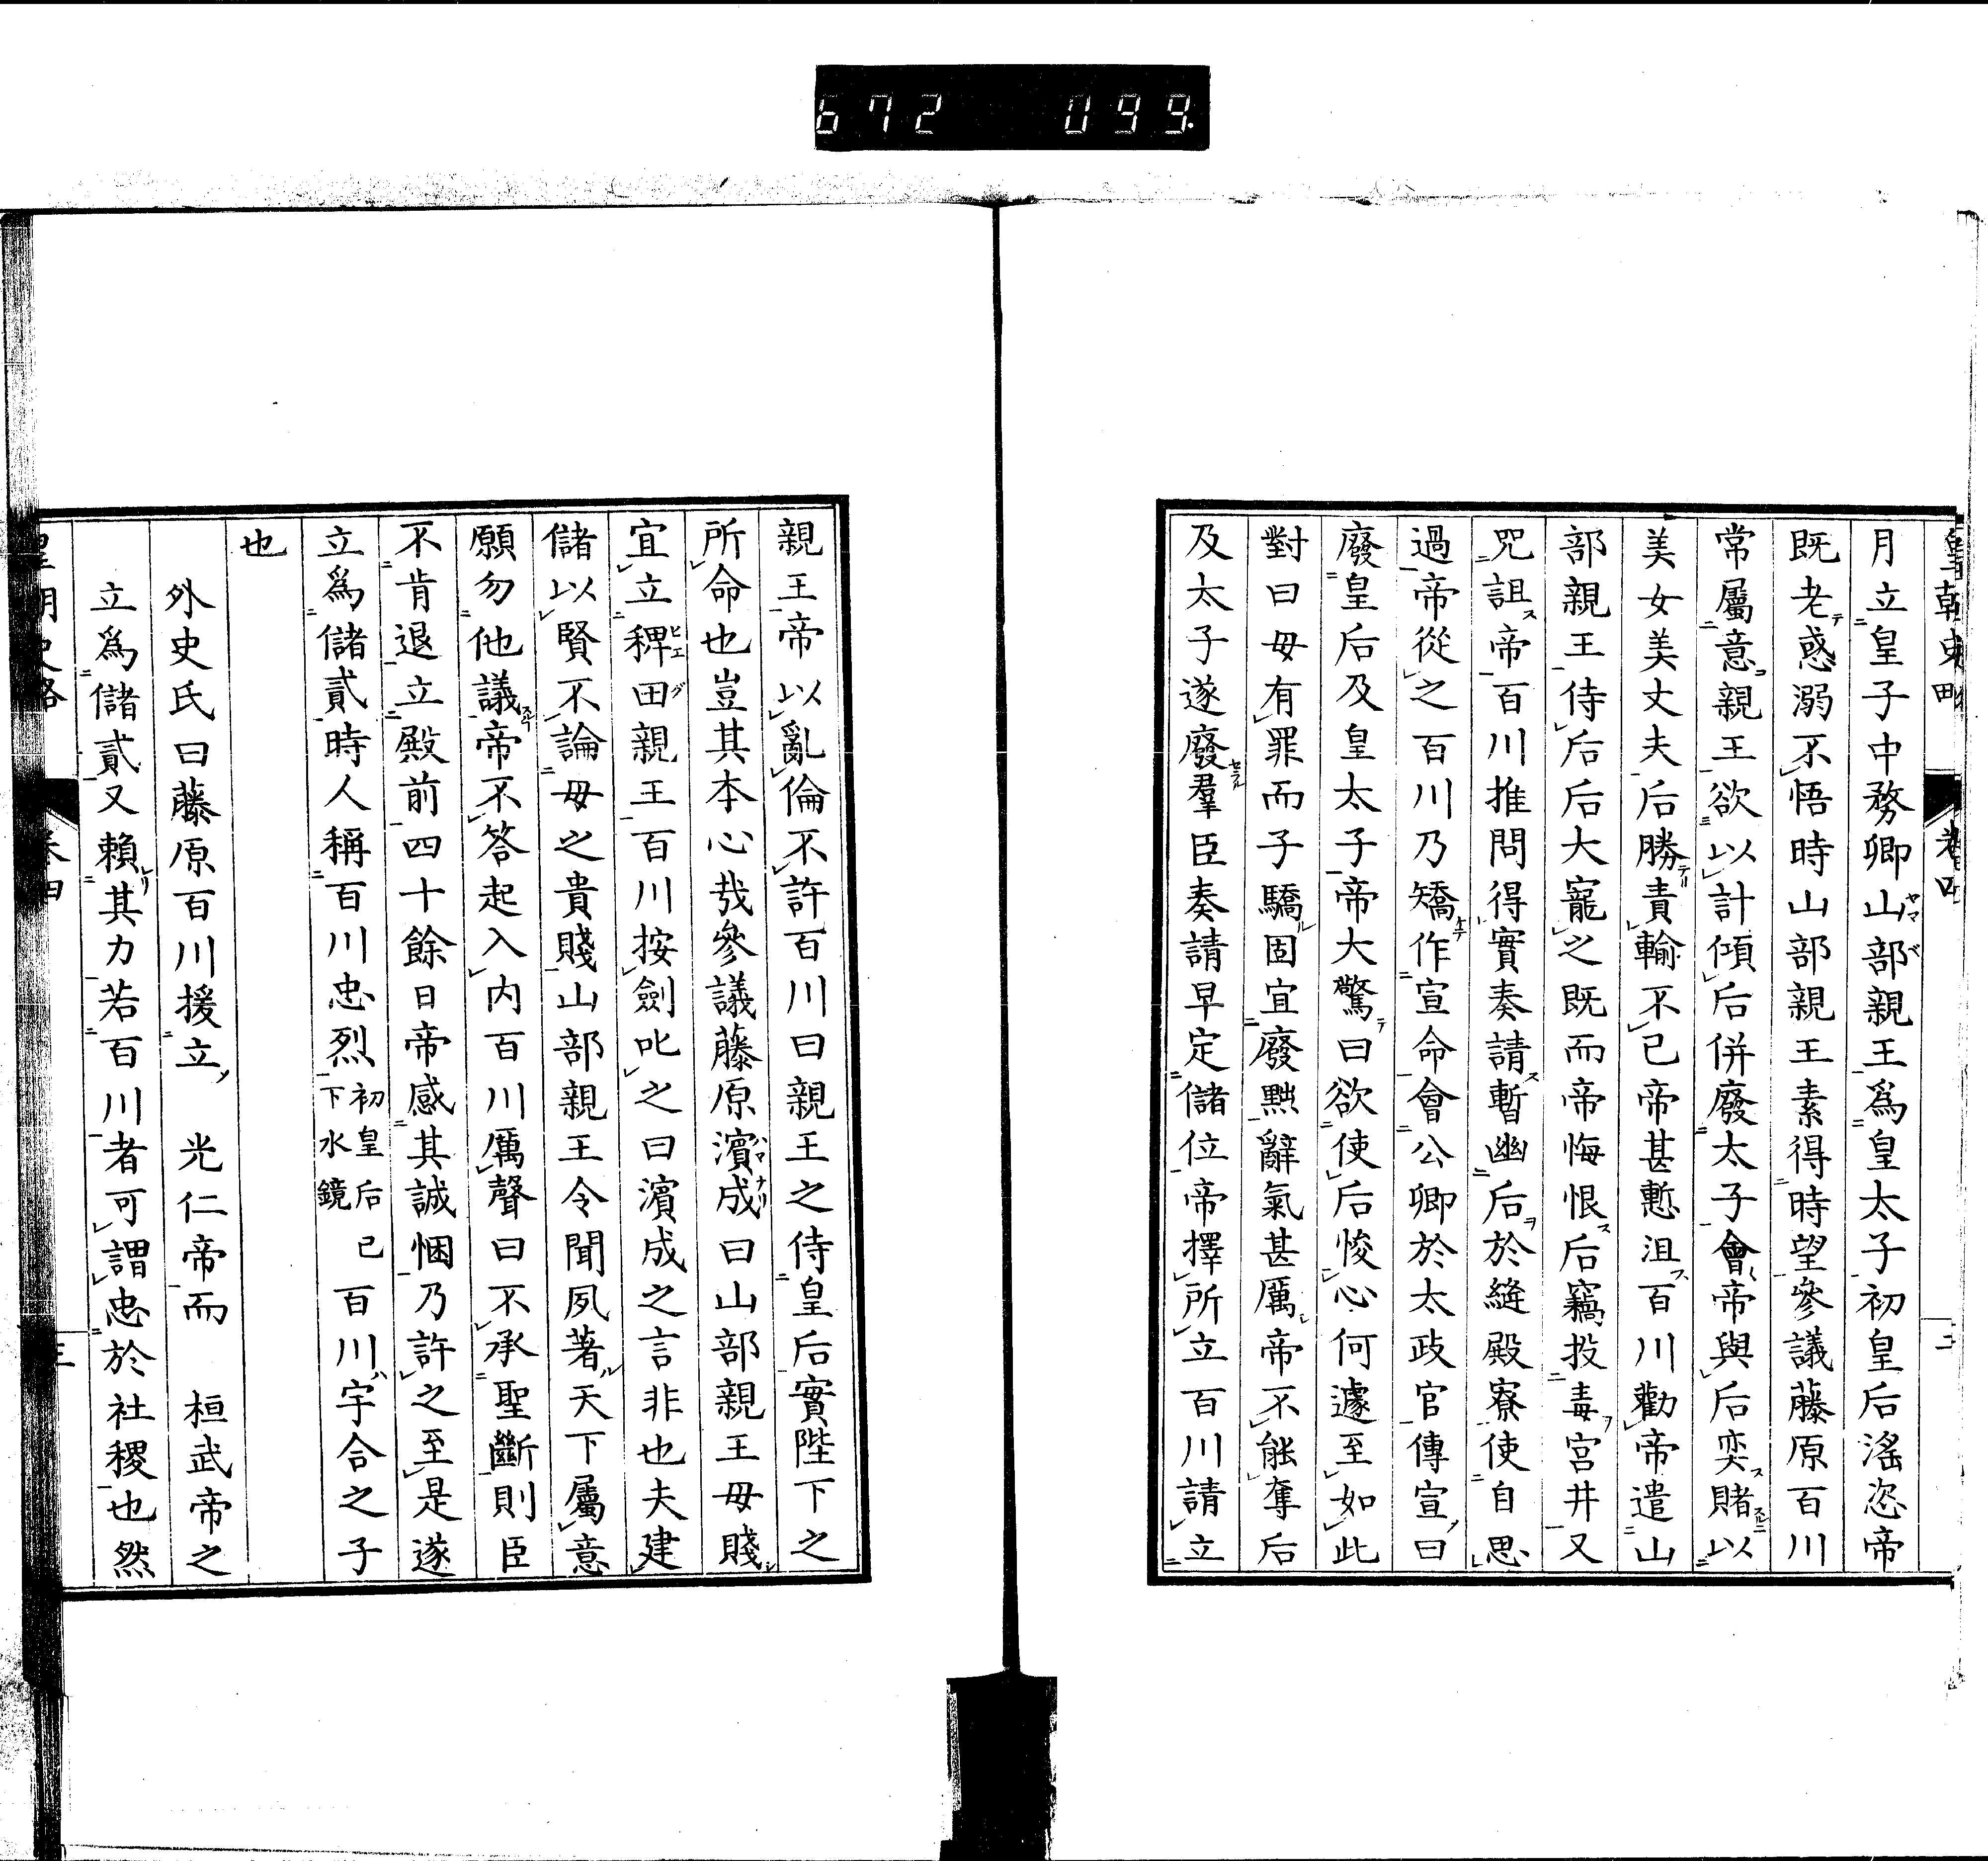 672 099.
皇朝史略 卷四 二
月立皇子中務卿山部親王爲皇太子初皇后滛恣帝
既老惑溺不悟時山部親王素得時望參議藤原百川
常屬意親王欲以計傾后併廢太子會帝與后奕賭以
美女美丈夫后勝責輸不已帝甚慙沮百川勸帝遣山
部親王侍后后大寵之既而帝悔恨后竊投毒宮井又
咒詛帝百川推問得實奏請暫幽后於縫殿寮使自思
過帝從之百川乃矯作宣命會公卿於太政官傳宣曰
廢皇后及皇太子帝大驚曰欲使后悛心何遽至如此
對曰母有罪而子驕固宜廢黜辭氣甚厲帝不能奪后
及太子遂廢羣臣奏請早定儲位帝擇所立百川請立
親王帝以亂倫不許百川曰親王之侍皇后實陛下之
所命也豈其本心哉參議藤原濱成曰山部親王母賤
宜立稗田親王百川按劍叱之曰濱成之言非也夫建
儲以賢不論母之貴賤山部親王令聞夙著天下屬意
願勿他議帝不答起入內百川厲聲曰不承聖斷則臣
不肯退立殿前四十餘日帝感其誠悃乃許之至是遂
立爲儲貳時人稱百川忠烈初皇后已下水鏡百川宇合之子
也
外史氏曰藤原百川援立 光仁帝而 桓武帝之
立爲儲貳又賴其力若百川者可謂忠於社稷也然
皇朝史略 卷四 三